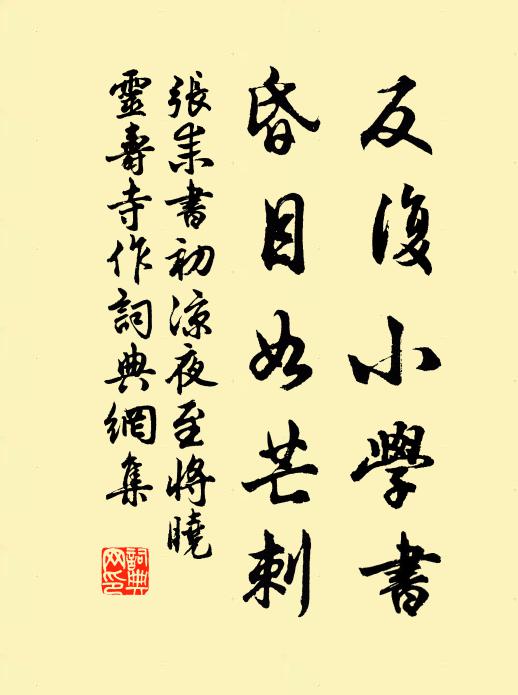 反復小學書
昏目如芒刺
張耒書初涼夜至將曉
靈壽寺作詞典網集
詞典網印